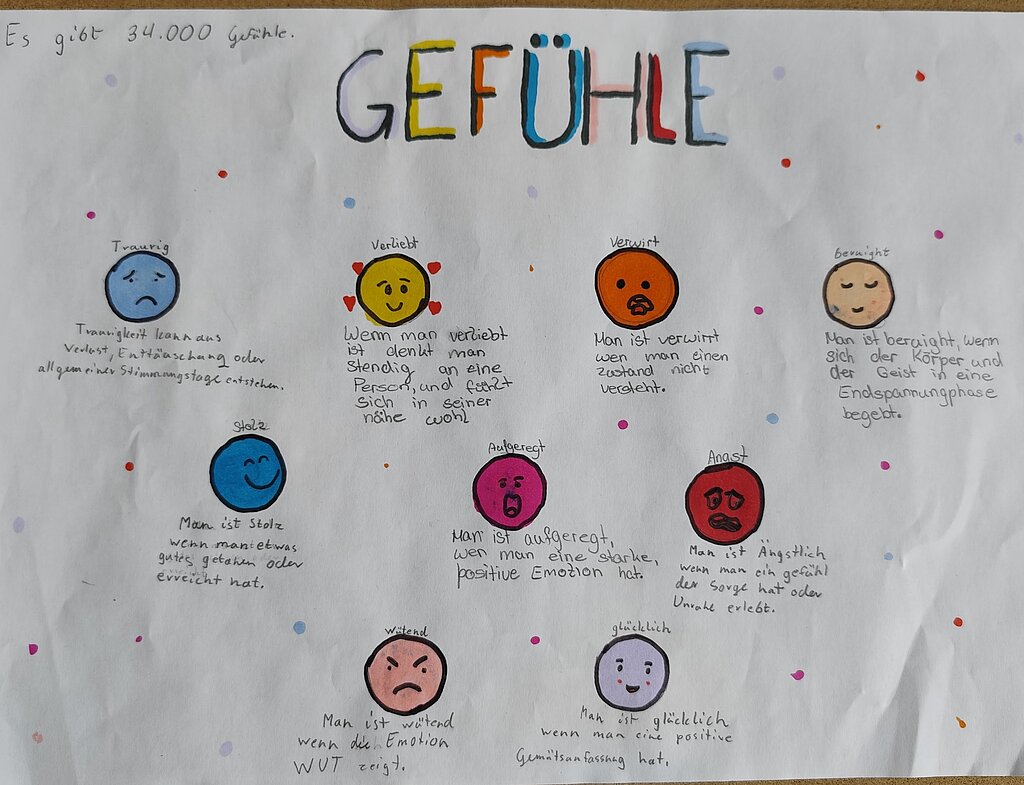 Es gibt 34.000 Gefühle.
GEFÜHLE
Traurig
Traurigkeit kann aus
Verlust, Enttäuschang oder
allgemeiner Stimmungstage entstehen.
Verliebt
Wenn man verliebt
ist denkt man
stendig an eine
Person, und fühlt
sich in seiner
nähe wohl
Verwirt
Man ist verwirrt
wen man einen
zustand nicht
versteht.
beruight
Man ist beruight, wenn
sich der Körper und
der Geist in eine
Endspannungphase
begebt.
Stolz
Man ist Stolz
wenn man etwas
gutes getahen oder
erreicht hat.
Aufgeregt
Man ist aufgeregt,
wen man eine starke,
positive Emotion hat.
Angst
Man ist Ängstlich
wenn man ein gefühl
der Sorge hat oder
Unruhe erlebt.
wütend
Man ist wütend
wenn die Emotion
WUT zeigt.
glücklich
Man ist glücklich
wenn man eine positive
Gemütsanfassnug hat.